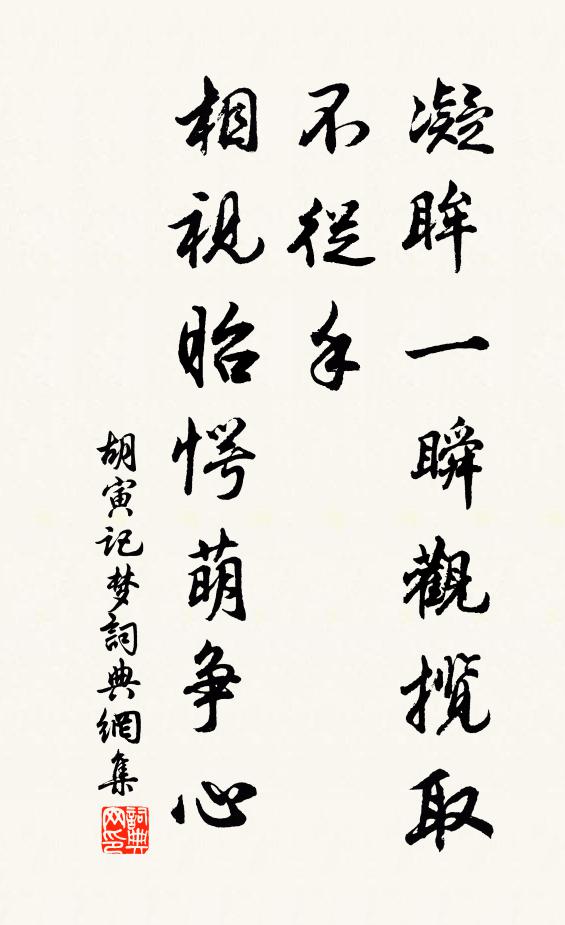 凝眸一瞬觀揽取
不從手
相視眙愕萌争心
胡寅记梦詞典網集
詞典网印